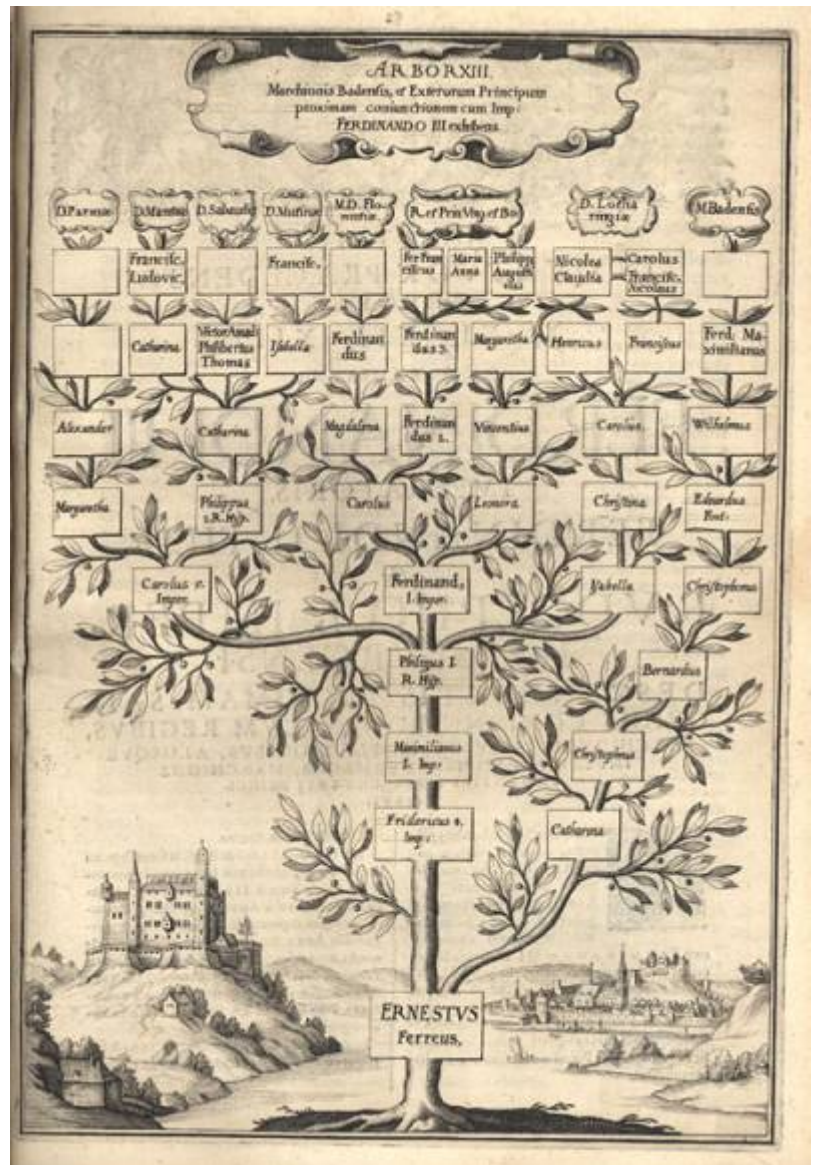 ARBOR XIII.
Marchionis Badensis, et Exterorum Principum
proximam coniunctionem cum Imp:
FERDINANDO III exhibens.
D. Parmæ
D. Mantuæ
D. Sabaudiæ
D. Mutinæ
M. D. Flo-
rentiæ
R. et Prin Vng. et Bo.
D. Lotha
ringiæ
M. Badensis
Francisc.
Ludovic.
Francisc.
Fer Fran
ciscus
Maria
Anna
Philipp
Augus
Nicolea
Claudia
Carolus
Francisc.
Nicolaus
Catharina
Victor Amad:
Philibertus
Thomas
Isabella
Ferdinan
dus
Ferdinan
dus 3.
Margaretha
Henricus
Franciscus
Ferd: Ma-
ximilianus
Alexander
Catharina
Magdalena
Ferdinan
dus 2.
Vincentius
Carolus
Wilhelmus
Margaretha
Philippus
2. R. Hisp.
Carolus
Leonora
Christina
Eduardus
Fort:
Carolus V.
Imper.
Ferdinand,
I. Imper.
Isabella
Christophorus
Philippus I.
R. Hisp.
Bernardus
Maximilianus
I. Imp:
Christophorus
Fridericus 4.
Imp:
Catharina
ERNESTVS
Ferreus,